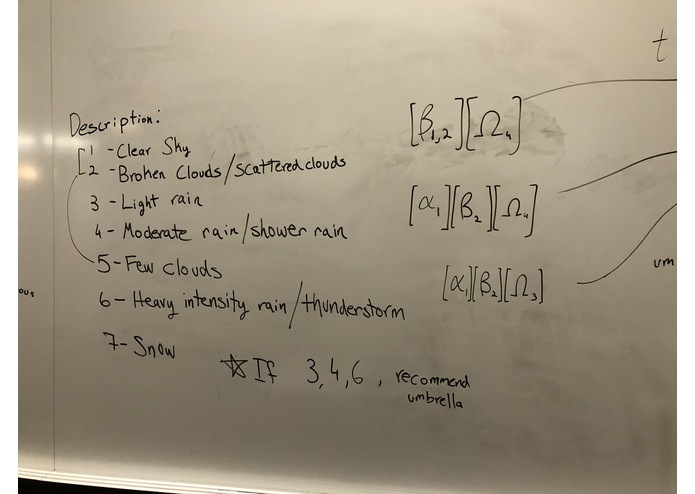 Description:
1 - Clear Sky
2 - Broken Clouds/scattered clouds
3 - Light rain
4 - Moderate rain/shower rain
5 - Few clouds
6 - Heavy intensity rain/thunderstorm
7 - Snow
☆ If 3,4,6, recommend
umbrella
[β₁,₂][Ω₄]
[α₁][β₂][Ω₄]
[α₁][β₂][Ω₃]
t
um
ous